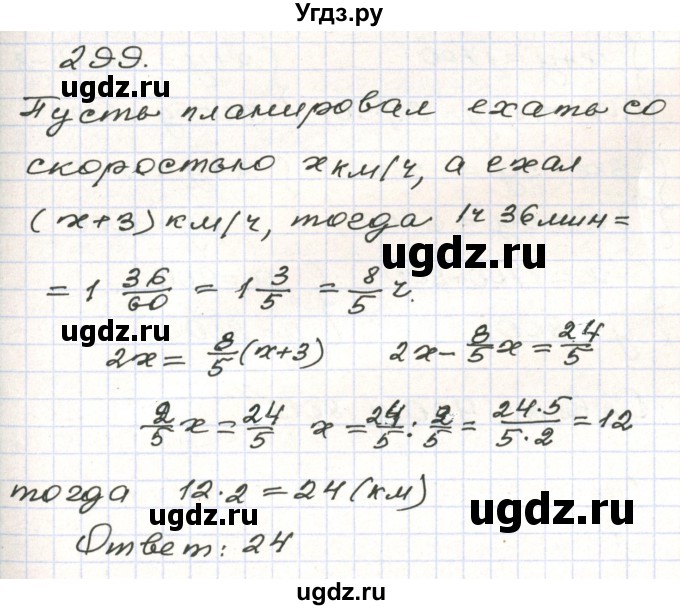 Угдз.ру
299.
ugdz.ru
Пусть планировал ехать со
ugdz.ru
скоростью x км/ч, а ехал
(x+3) км/ч, тогда 1ч 36 мин =
ugdz.ru
= 1 36/60 = 1 3/5 = 8/5 ч.
ugdz.ru
2x = 8/5 (x+3) 2x - 8/5 x = 24/5
ugdz.ru
2/5 x = 24/5 x = 24/5 : 2/5 = 24·5/5·2 = 12
тогда 12·2 = 24 (км)
ugdz.ru ugdz.ru
Ответ: 24
ugdz.ru